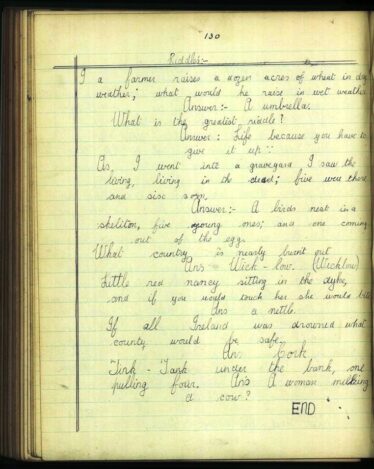 130
Riddles:-
I a farmer raises a dozen acres of wheat in dry
weather; what would he raise in wet weather
Answer:- A umbrella.
What is the greatest riddle?
Answer: Life because you have to
give it up
As, I went into a graveyard I saw the
living, living in the dead; five were there
and sisc soon,
Answer:- A birds nest in a
skeliton, five young ones; and one coming
out of the egg.
What country is nearly burnt out
Ans Wick-low. (Wicklow)
Little red nancy sitting in the dyke,
and if you would touch her she would bite
Ans a nettle.
If all Ireland was drowned what
county would be safe.
Ans Cork
Tink-Tank under the bank, one
pulling four. Ans A woman milking
a cow?
END